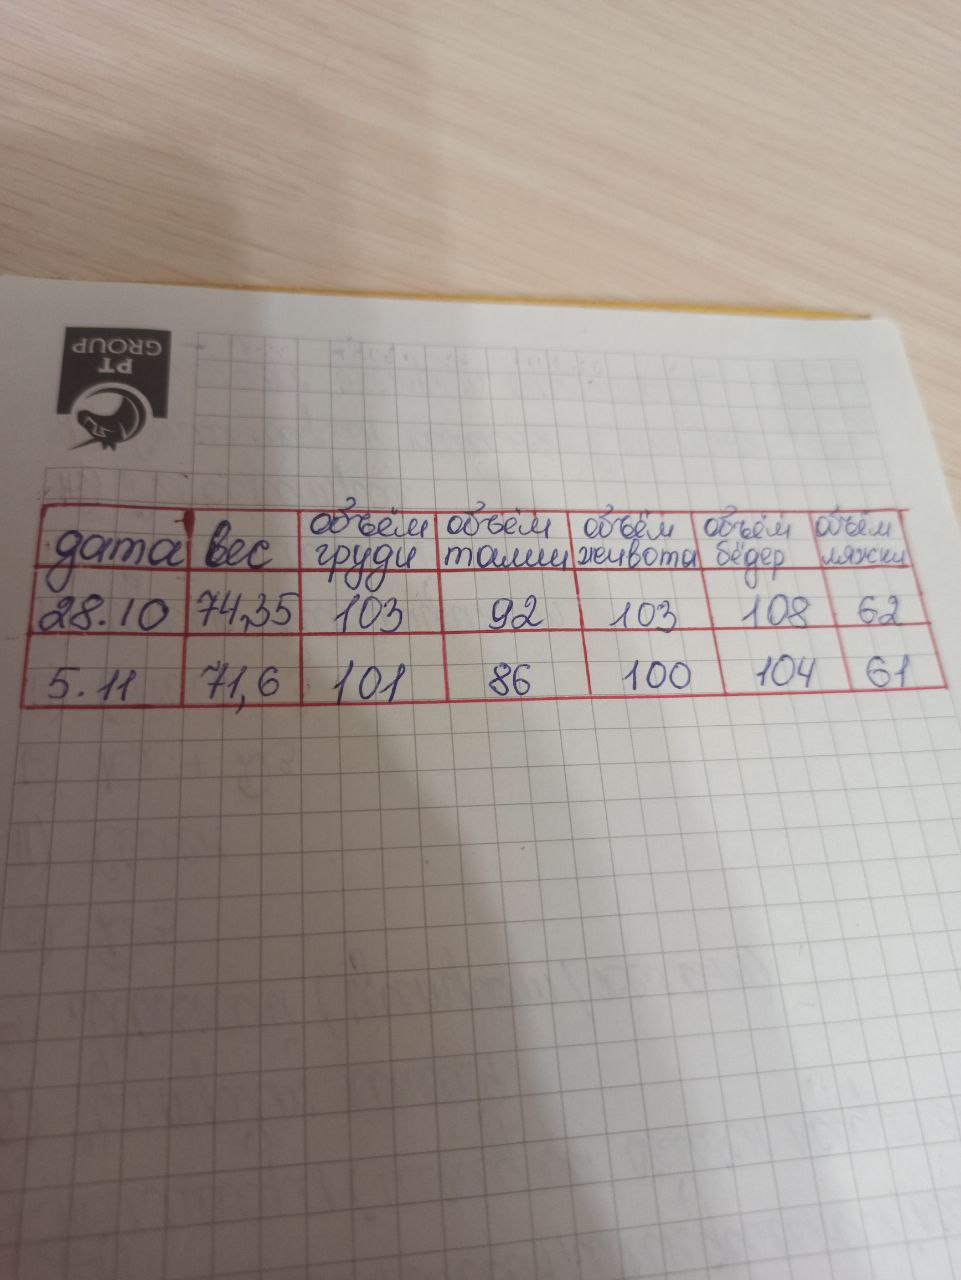 PT
GROUP
дата вес объём груди объём талии объём живота объём бёдер объём ляжки
28.10 74,35 103 92 103 108 62
5.11 71,6 101 86 100 104 61